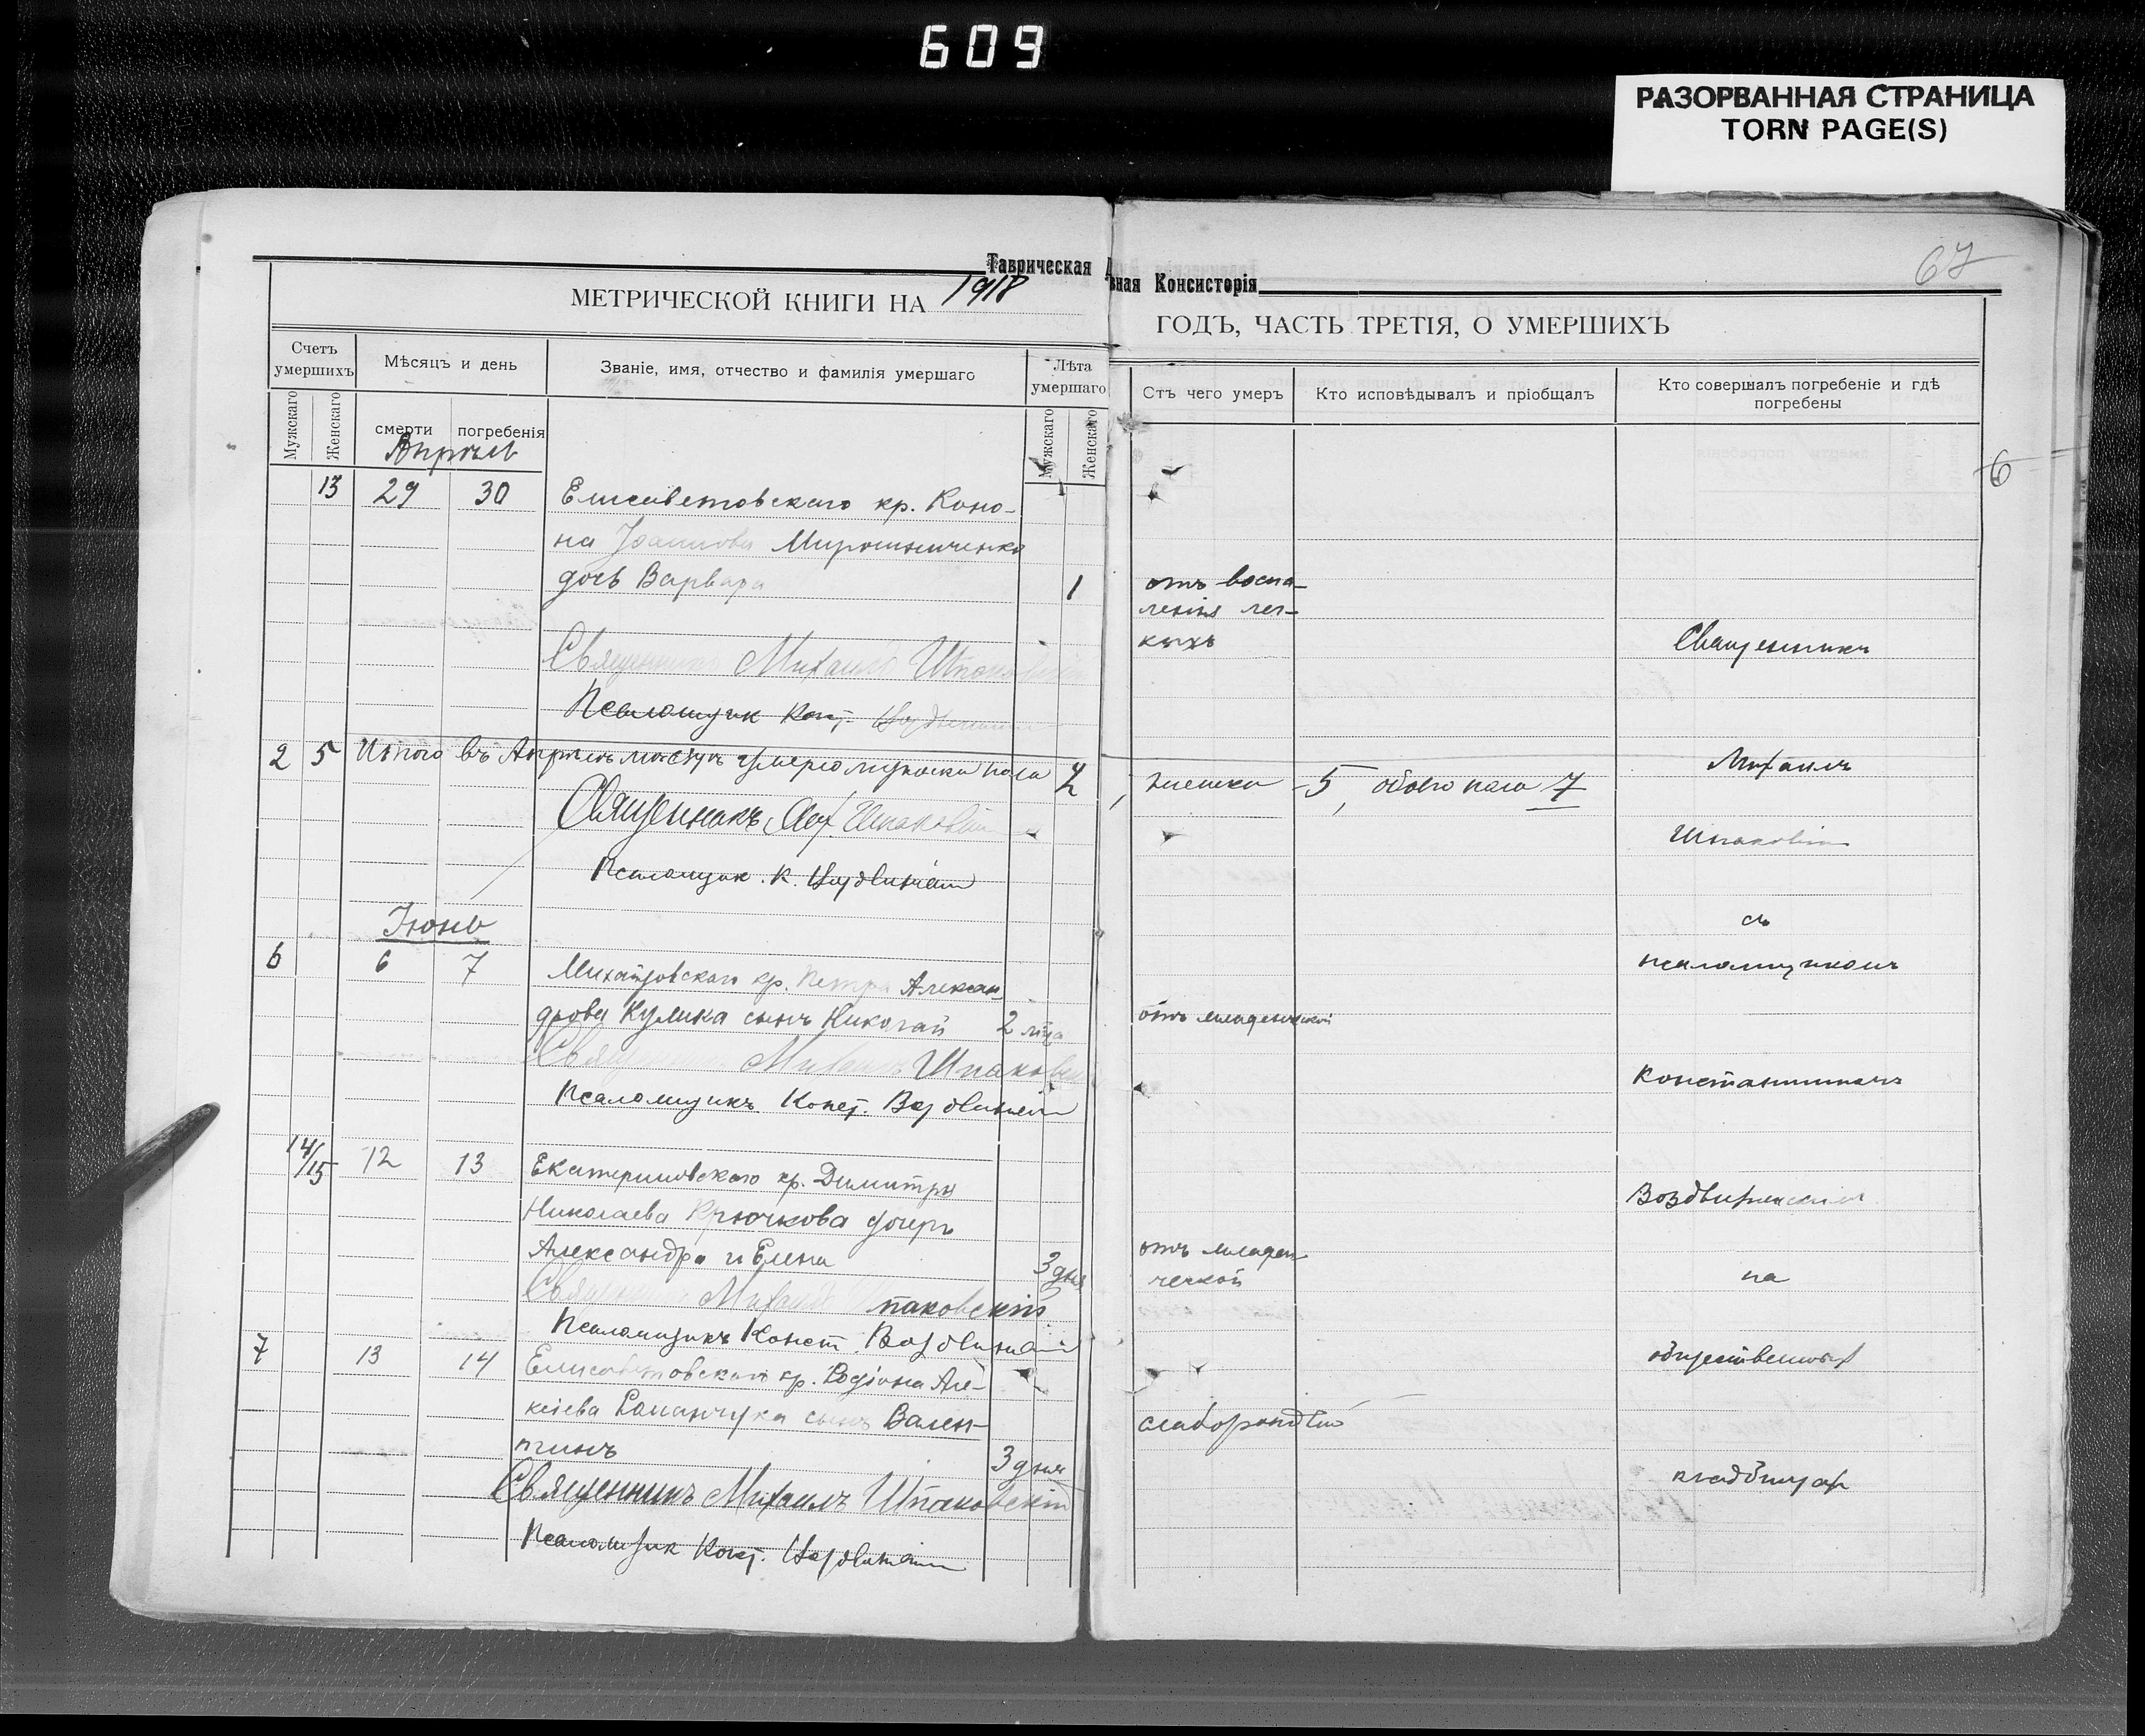 609
РАЗОРВАННАЯ СТРАНИЦА
TORN PAGE(S)
67
Таврическая Д
вная Консисторія
МЕТРИЧЕСКОЙ КНИГИ НА 1918
ГОДЪ, ЧАСТЬ ТРЕТІЯ, О УМЕРШИХЪ
Счетъ умершихъ
Мужскаго
Женскаго
Мѣсяцъ и день
смерти
погребенія
Званіе, имя, отчество и фамилія умершаго
Лѣта умершаго
Мужскаго
Женскаго
Отъ чего умеръ
Кто исповѣдывалъ и пріобщалъ
Кто совершалъ погребеніе и гдѣ
погребены
6
Апрѣль
13 29 30 Елисаветовскаго кр. Коно-
на Іоаннова Мирошниченко
дочь Варвара 1 отъ воспа-
ленія лег-
кихъ
Священникъ Михаилъ Шпаковскій
Псаломщик Конст.
2 5 Итого въ Апрѣлѣ мѣсяцѣ умерло мужеска пола 2, женска 5, обоего пола 7
Священникъ Мих. Шпаковскій
Псаломщик К.
Іюнь
6 6 7 Михайловскаго кр. Петра Алексан
дрова Кулика сынъ Николай 2 лѣта отъ младенческой
Священникъ Михаилъ Шпаковскій
Псаломщикъ Конст. Воздвиженскій
14/15 12 13 Екатериновскаго кр. Димитрія
Николаева Крючкова дочери
Александра и Елена 3 дня отъ младен
ческой
Священникъ Михаилъ Шпаковскій
Псаломщикъ Конст. Воздвиженскій
7 13 14 Елисаветовскаго кр. Родіона Але-
ксіева Романчука сынъ Вален-
тинъ 3 дня
Священникъ Михаилъ Шпаковскій
Псаломщик Конст.
Священникъ
Михаилъ
Шпаковскій
съ
псаломщикомъ
Константиномъ
Воздвиженскимъ
на
общественныхъ
кладбищахъ